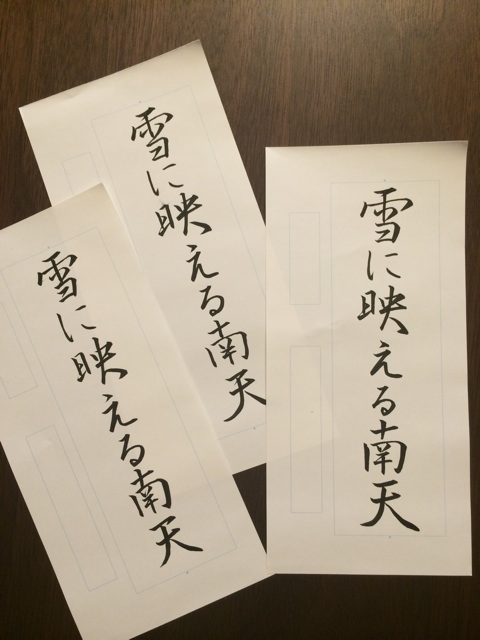 雪に映える南天
雪に映える南天
雪に映える南天